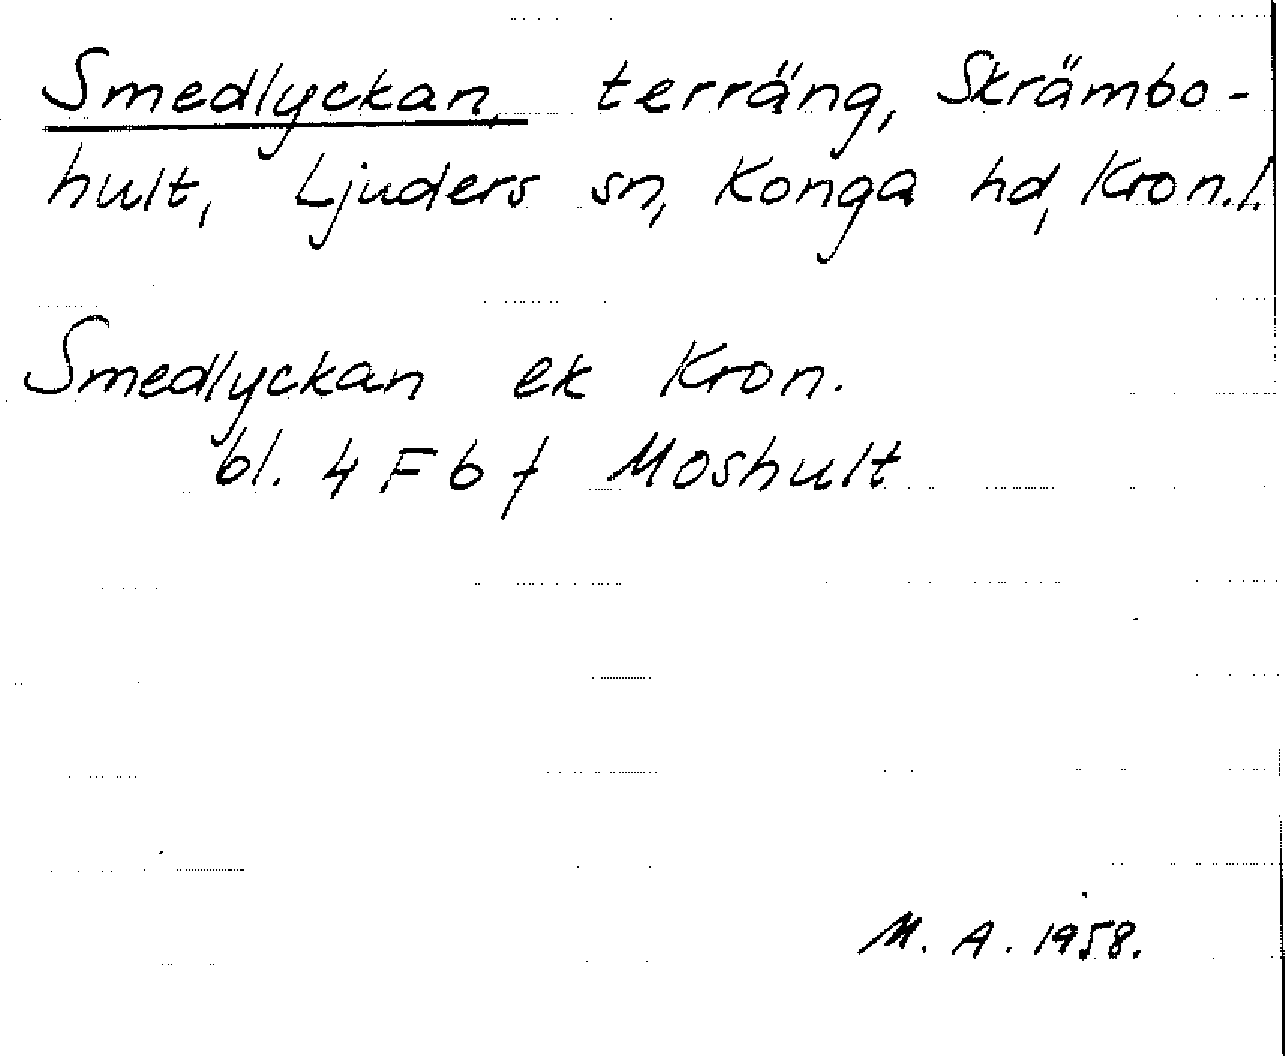 Smedlyckan, terräng, Skrämbo-
hult, Ljuders sn, Konga hd, Kron.l.
Smedlyckan ek Kron.
bl. 4 F b f Moshult
M. A. 1958.